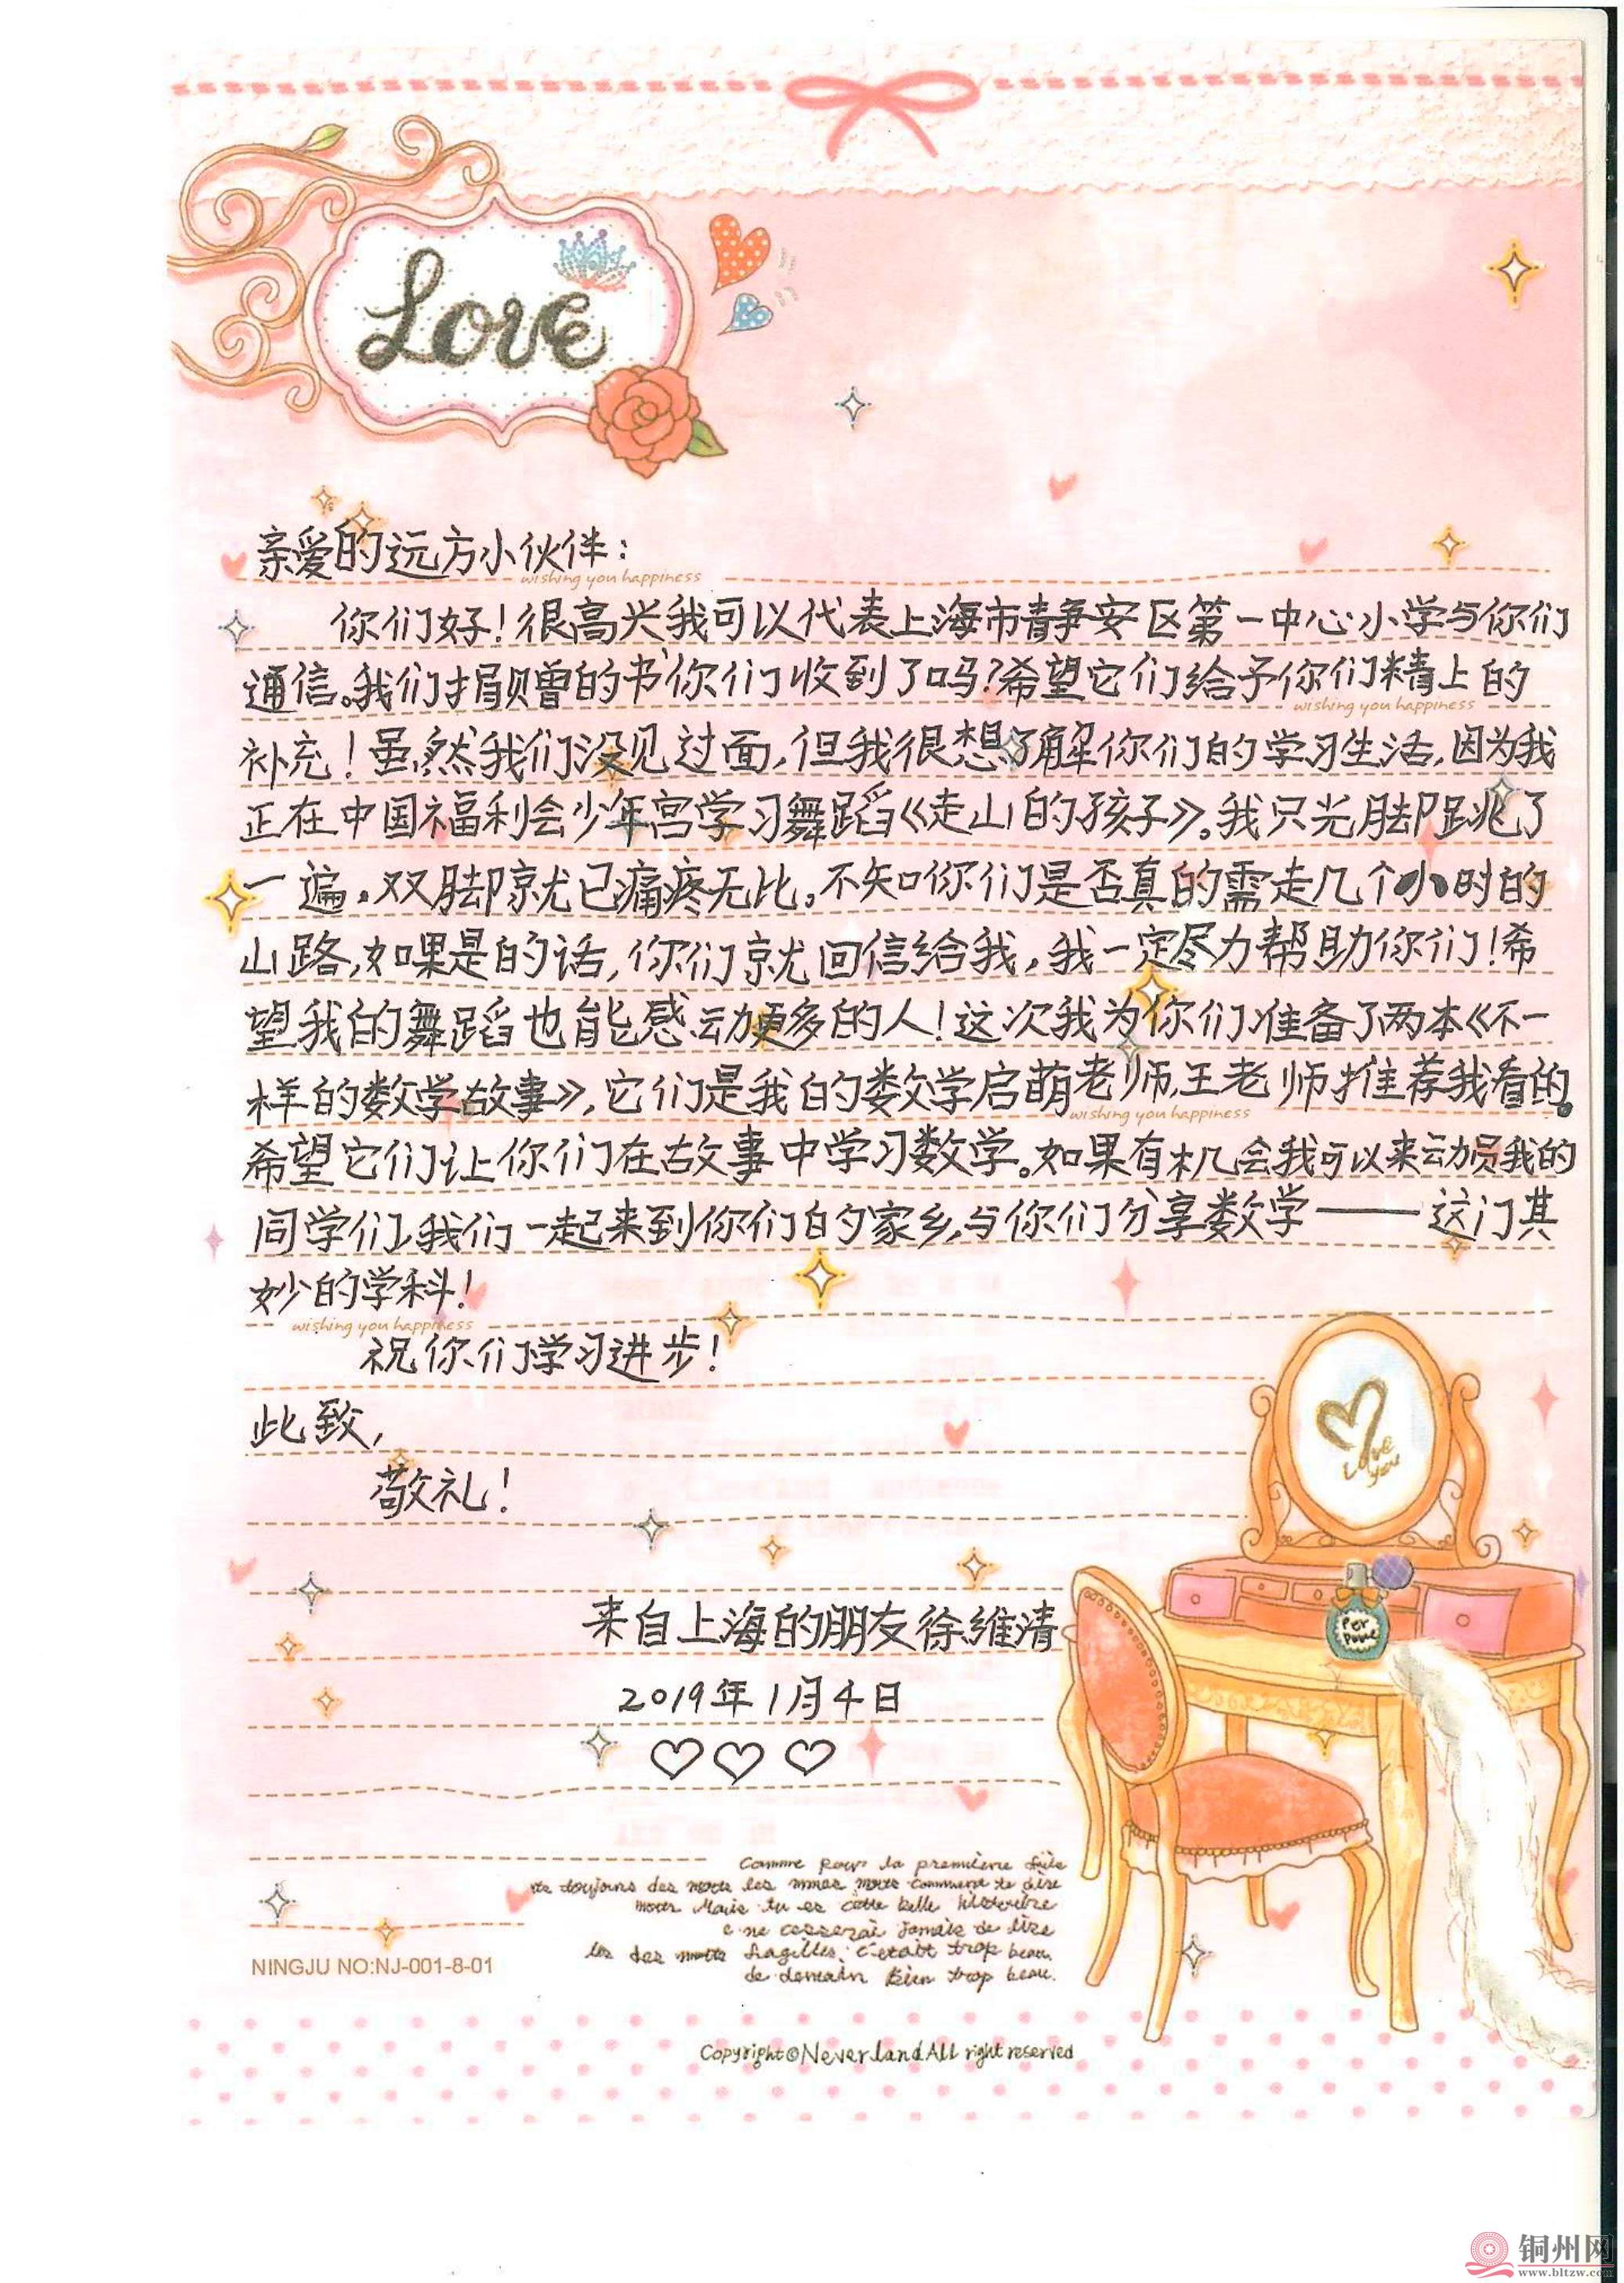 Love
亲爱的远方小伙伴：
wishing you happiness
你们好！很高兴我可以代表上海市静安区第一中心小学与你们
通信。我们捐赠的书你们收到了吗？希望它们给予你们精上的
wishing you happiness
补充！虽然我们没见过面，但我很想了解你们的学习生活，因为我
正在中国福利会少年宫学习舞蹈《走山的孩子》。我只光脚跳了
一遍，双脚就已痛疼无比。不知你们是否真的需走几个小时的
山路，如果是的话，你们就回信给我，我一定尽力帮助你们！希
望我的舞蹈也能感动更多的人！这次我为你们准备了两本《不一
样的数学故事》，它们是我的数学启萌老师，王老师推荐我看的。
wishing you happiness
希望它们让你们在故事中学习数学。如果有机会我可以来动员我的
同学们，我们一起来到你们的家乡，与你们分享数学——这门其
妙的学科！
wishing you happiness
祝你们学习进步！
此致，
敬礼！
Love you
来自上海的朋友徐维清
Per
2019年1月4日
Comme la première
toujours des les comment te dire
Marie tu es cette belle
ne cesserai jamais de lire
des fragiles c'était trop beau
de demain bien trop beau.
NINGJU NO:NJ-001-8-01
Copyright©Never.land All right reserved
铜州网
www.bltzw.com